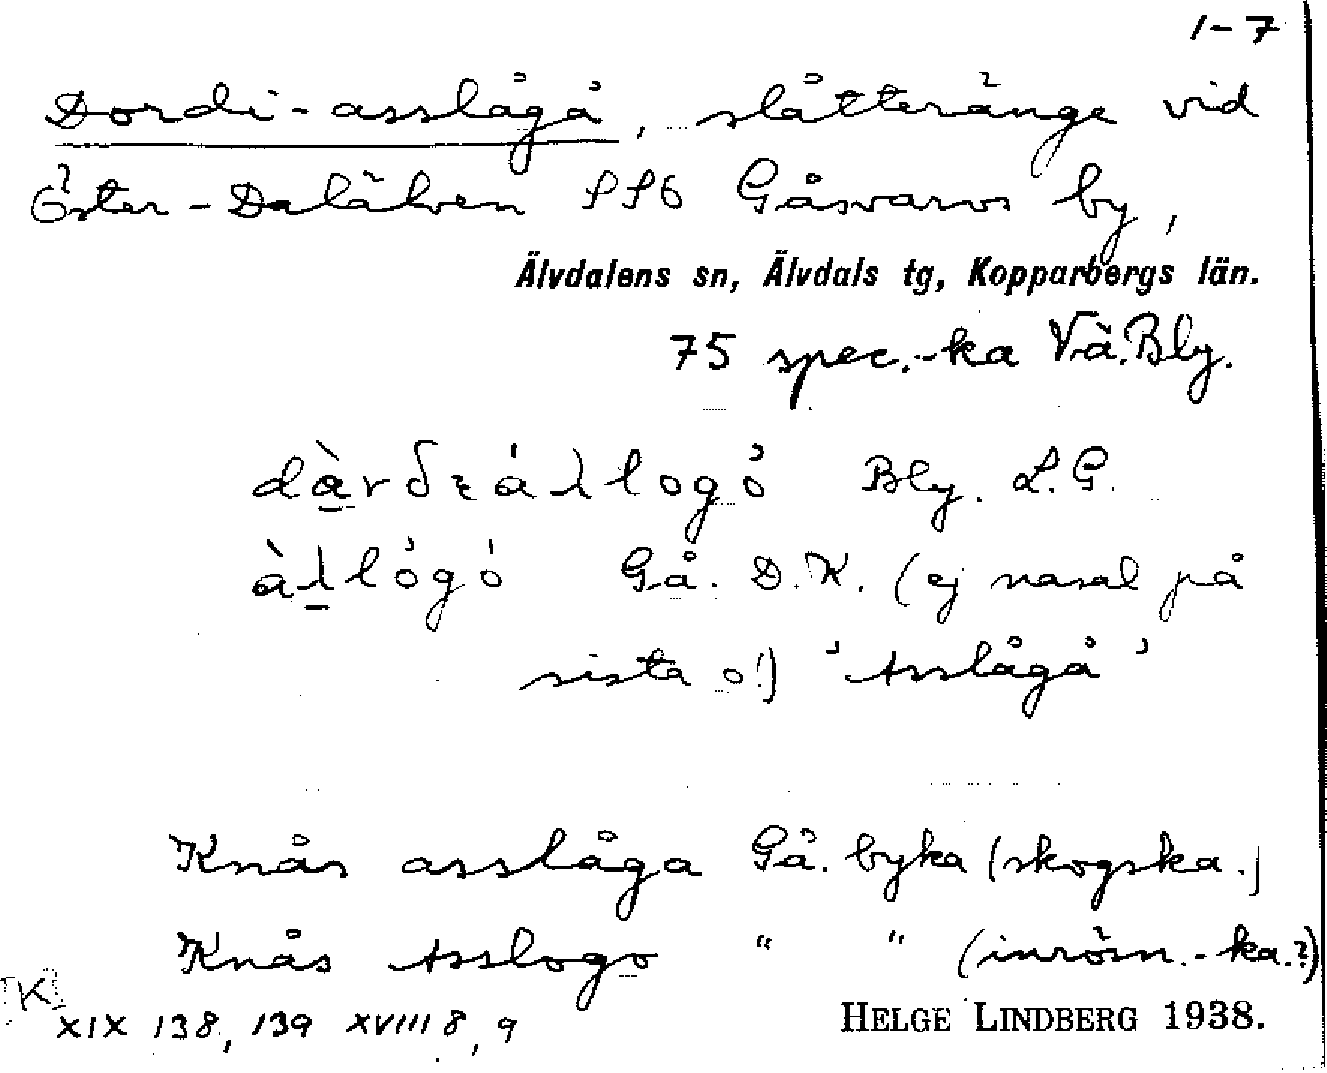 1-7
Dordi-asslågå, slåtteränge vid
Öster-Dalälven SSO Gåsvarvs by,
Älvdalens sn, Älvdals tg, Kopparbergs län.
75 spec.-ka Vä.Bly.
Bly. L.G.
Gå. D.K. (ej nasal på
sista o!) 'Asslågå'
Knås asslåga Gå. byka (skogska.)
Knås Asslogo " " (inrösn.-ka.?)
K
XIX 138, 139 XVIII 8, 9
HELGE LINDBERG 1938.